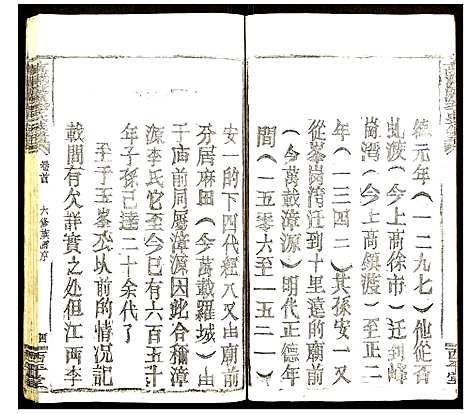 德元年（一二九七）他從香
虬渡（今上高徐市）迁到峰
崗湾（今上高鎮渡）至正二
年（一三四二）其孫安一又
從峯崗湾迁到十里遠的廟前
間（一五零六至一五二一）
（今萬載漳源）明代正德年
安一的下四代經八又由廟前
分居麻田（今萬載羅城）由
于庙前同屬漳源因此合稱漳
源李氏它至今已有六百五十
年子孫已達二十余代了
至于峯丕以前的情况記
載間有欠詳實之处但江西李
卷首
六修族譜序
四
西平堂